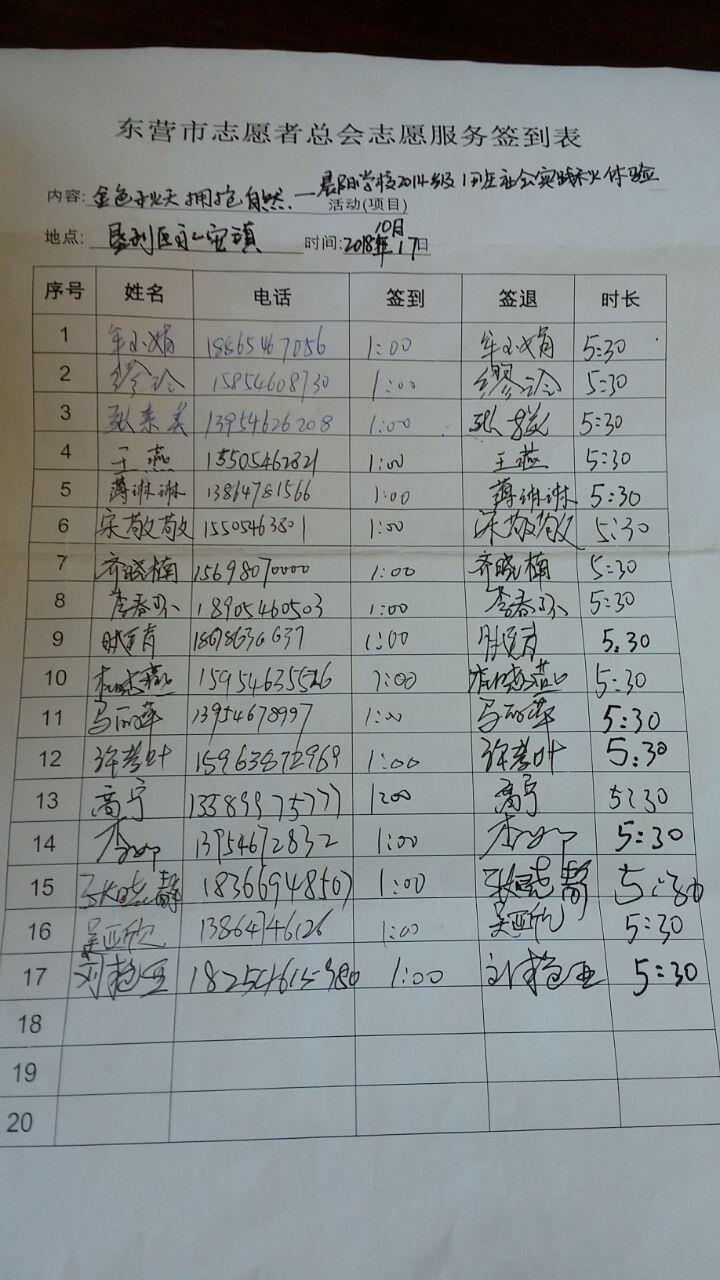 东营市志愿者总会志愿服务签到表
内容: 金色秋天 拥抱自然.—晨阳学校2014级1班社会实践秋火体验
活动(项目)
地点: 垦利区永安镇 时间: 2018年10月17日
序号 姓名 电话 签到 签退 时长
1 牟小娟 18865467056 1:00 牟小娟 5:30
2 缪玲 15854608730 1:00 缪玲 5:30
3 13954626208 1:00 5:30
4 王燕 15505462821 1:00 王燕 5:30
5 薄琳琳 13864781566 1:00 薄琳琳 5:30
6 宋敬敬 15505463801 1:00 宋敬敬 5:30
7 齐晓楠 15698070000 1:00 齐晓楠 5:30
8 李春 18905460503 1:00 李春 5:30
9 1:00 5.30
10 15954635526 1:00 5:30
11 马丽萍 13954678997 1:00 马丽萍 5:30
12 许考叶 15963872969 1:00 许考叶 5:30
13 高宁 13589975777 1:00 高宁 5:30
14 13954672832 1:00 5:30
15 张晓静 18366948567 1:00 张晓静 5:30
16 吴亚欣 13864746126 1:00 吴亚欣 5:30
17 刘艳亚 18254615980 1:00 刘艳亚 5:30
18
19
20